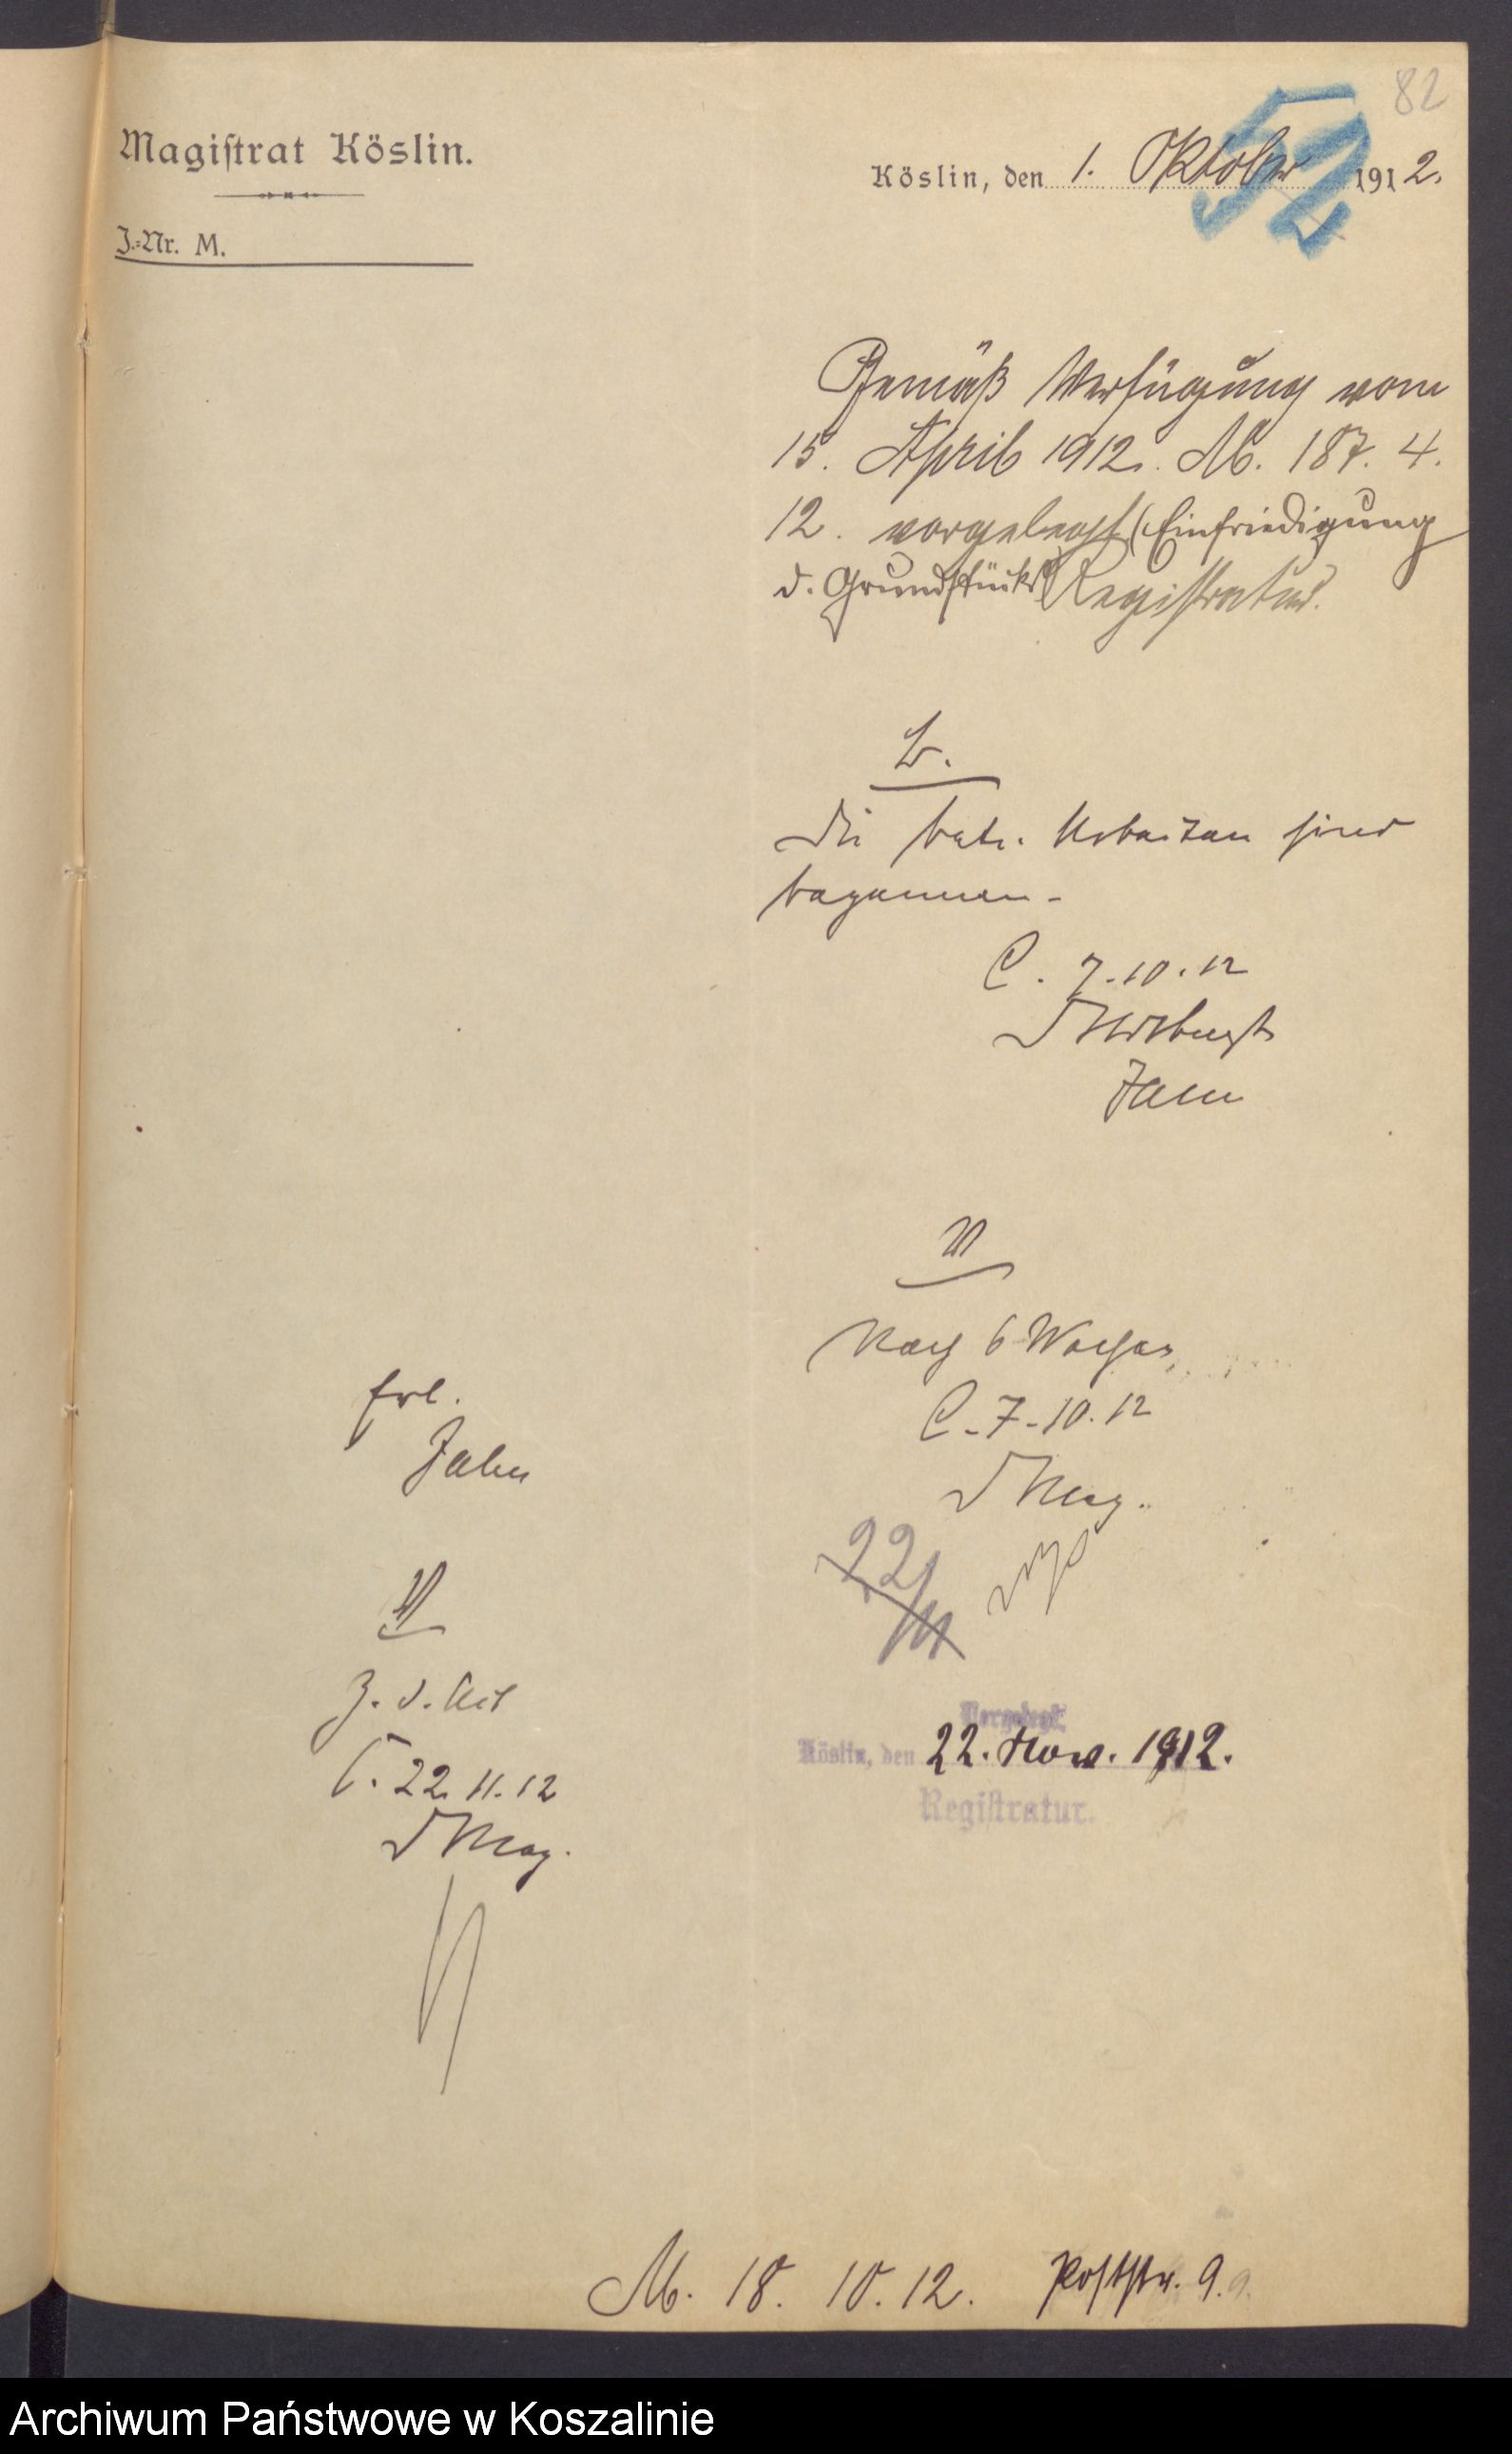 82
52
Magiſtrat Köslin.
Köslin, den 1. Oktober 1912.
J.-Nr. M.
Gemäß Verfügung vom
15. April 1912. M. 187. 4.
12. vorgelegt (Einfriedigung
d. Grundstücks) Registratur.
b.
Die betr. Arbeiten sind
begonnen.
C. 7.10.12
Jahn
W
Nach 6 Wochen
C. 7.10.12
D Mag.
22/11
Vorgelegt
Köslin, den 22. Nov. 1912.
Regiſtratur.
erl.
Jahn
W
Z. d. Akt
C. 22.11.12
D Mag.
M. 18. 10. 12. Poststr. 9.
Archiwum Państwowe w Koszalinie